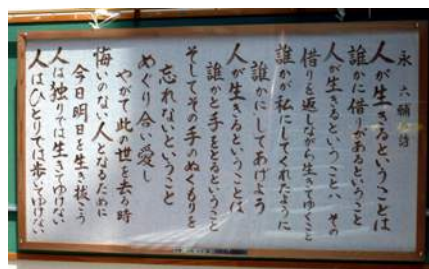 永 六輔 詩
人が生きるということは
誰かに借りがあるということ
人が生きるということは、その
借りを返しながら生きてゆくこと
誰かが私にしてくれたように
誰かにしてあげよう
人が生きるということは
誰かと手をとるということ
そしてその手のぬくもりを
忘れないということ
めぐり合い愛し
やがて此の世を去る時
悔いのない人となるために
今日明日を生き抜こう
人は独りでは生きてゆけない
人はひとりでは歩いてゆけない